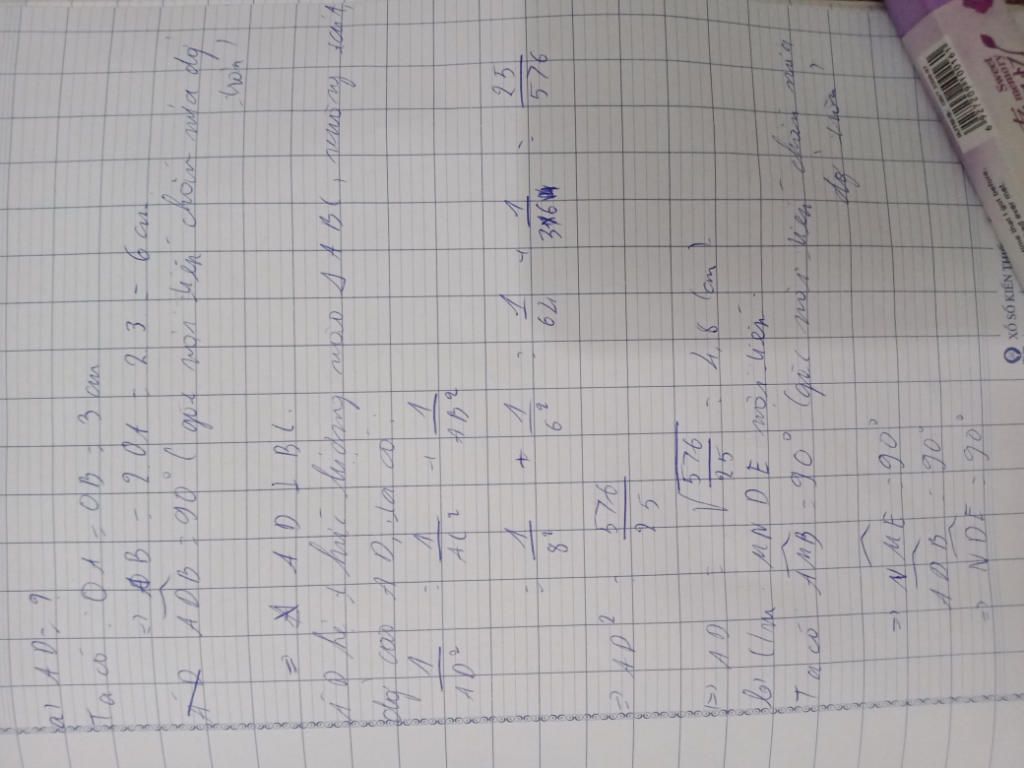 a) AD = ?
Ta có: OA = OB = 3 cm
=> AB = 2.OA = 2.3 = 6 cm
ADB = 90° (góc nội tiếp chắn nửa đg tròn)
=> AD ⊥ BC
AD là hức lượng vào Δ ABC, vuông tại A,
đg cao AD, ta có:
1/AD² = 1/AC² + 1/AB²
= 1/8² + 1/6² = 1/64 + 1/36 = 25/576
=> AD² = 576/25
=> AD = √576/25 = 4,8 (cm)
b) Cm MNDE nội tiếp.
Ta có AMB = 90° (góc nội tiếp chắn nửa đg tròn)
=> NME = 90°
ADB = 90°
=> NDE = 90°
XỔ SỐ KIẾN THIẾT
Sweet Memory